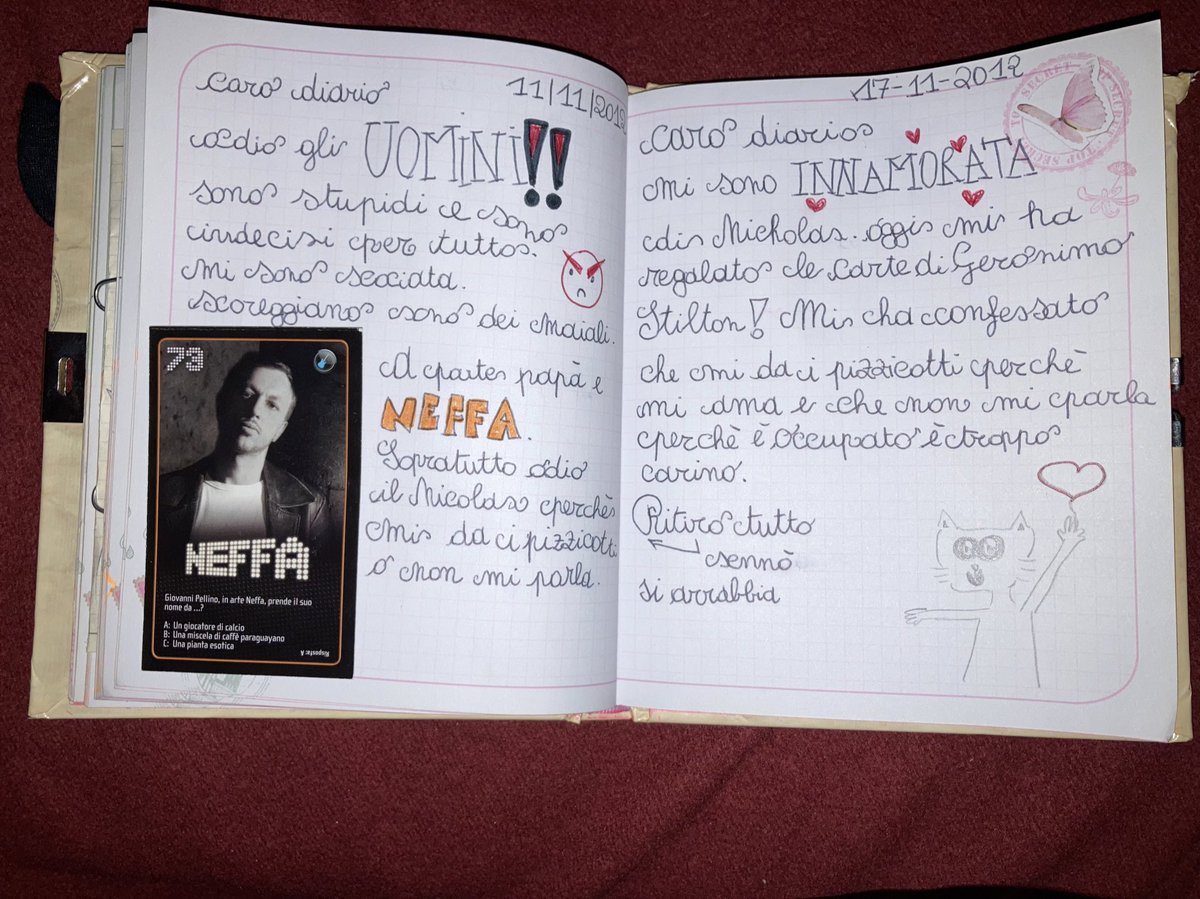 caro diario
11/11/2012
odio gli UOMINI!!
sono stupidi e sono
indecisi per tutto.
mi sono scociata.
scoreggiano sono dei maiali.
A parte papà e
NEFFA.
Sopratutto odio
il Nicolas perchè
mi da ci pizzicotti
o non mi parla.
73
NEFFA
Giovanni Pellino, in arte Neffa, prende il suo
nome da ...?
A: Un giocatore di calcio
B: Una miscela di caffè paraguayano
C: Una pianta esotica
Risposta: A
17-11-2012
TOP SECRET
caro diario
mi sono INNAMORATA
di Nicholas. oggi mi ha
regalato le carte di Geronimo
Stilton! Mi ha confessato
che mi da ci pizzicotti perchè
mi ama e che non mi parla
perchè è occupato è troppo
carino.
Ritiro tutto
sennò
si arrabbia